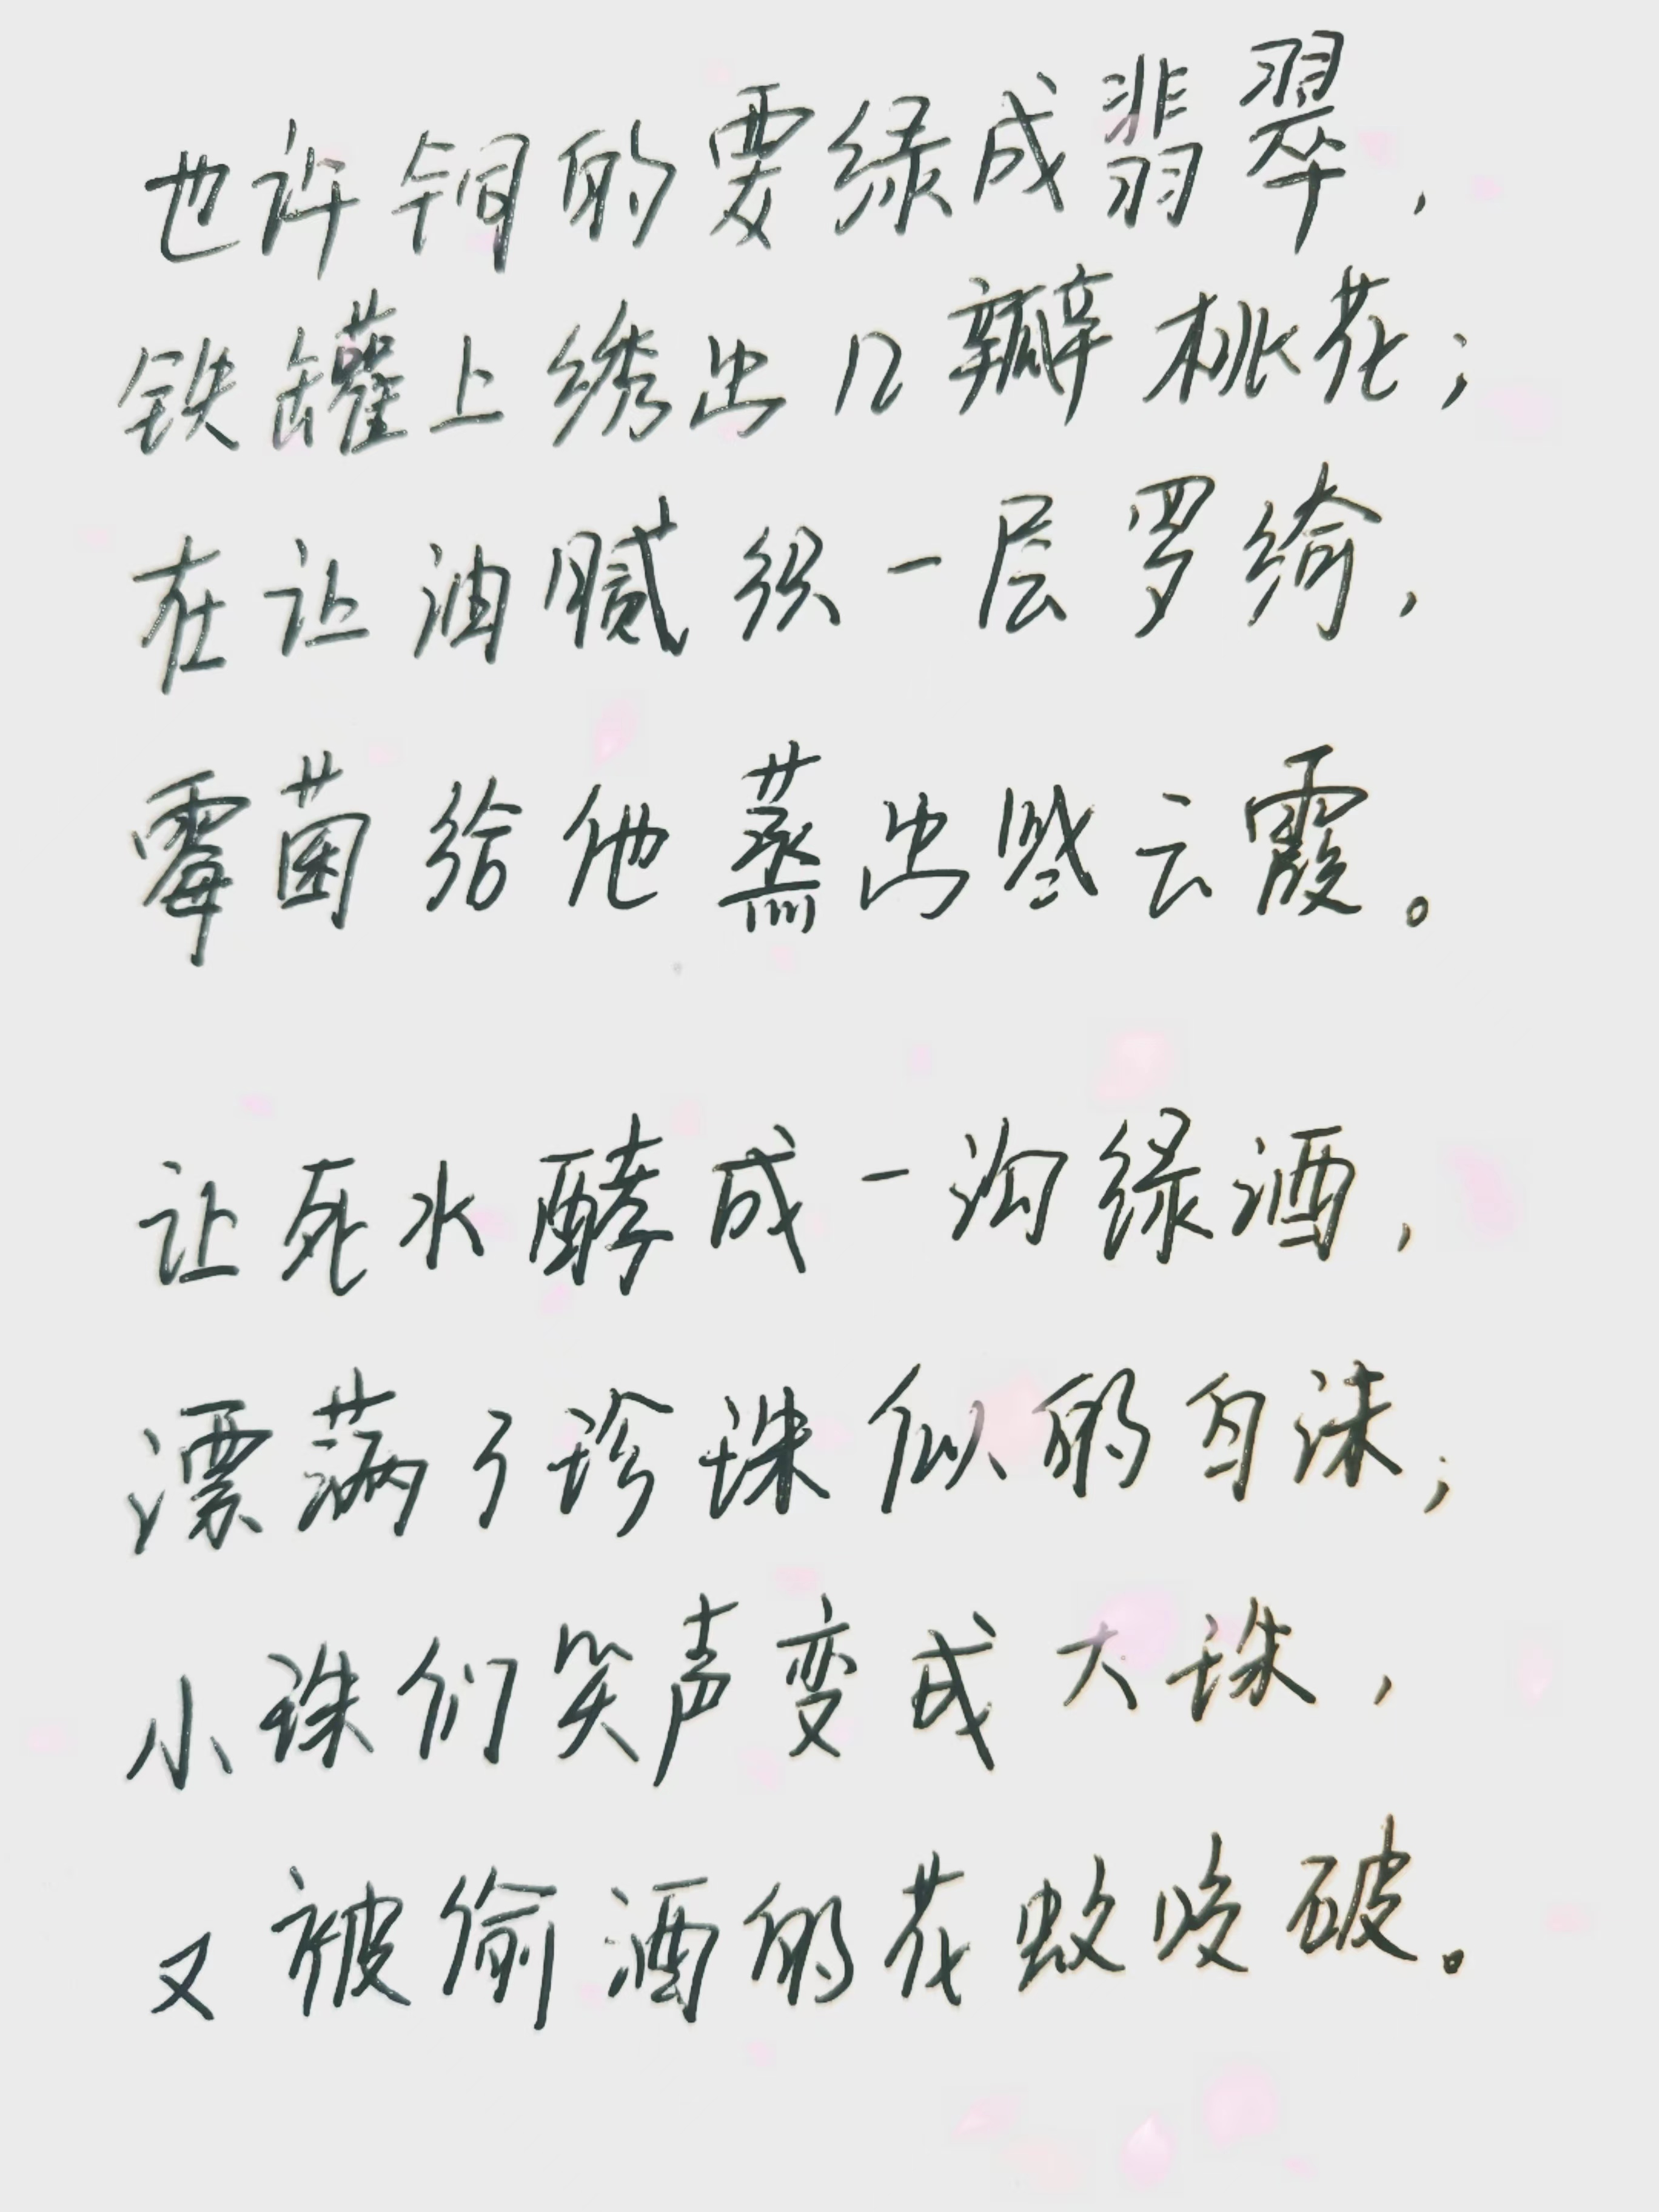 也许铜的要绿成翡翠，
铁罐上绣出几瓣桃花；
在让油腻织一层罗绮，
霉菌给他蒸出些云霞。
让死水酵成一沟绿酒，
漂满了珍珠似的白沫；
小珠们笑声变成大珠，
又被偷酒的花蚊咬破。